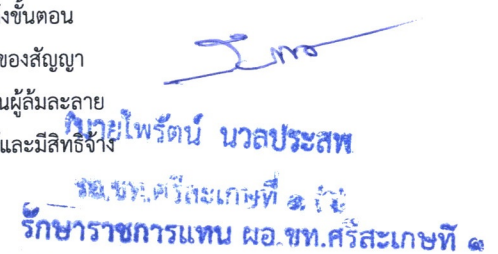 ังขั้นตอน
ของสัญญา
นผู้ล้มละลาย
และมีสิทธิจ้าง
(นายไพรัตน์ นวลประสพ
รอ.ขท.ศรีสะเกษที่ ๑
รักษาราชการแทน ผอ.ขท.ศรีสะเกษที่ ๑